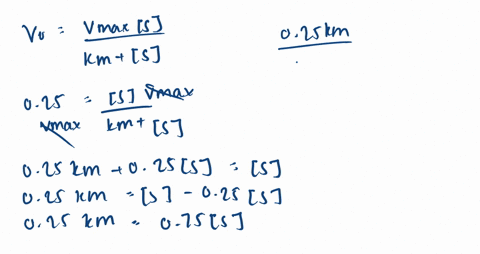 V0 = Vmax [S]
km + [S]
0.25 km
0.25 = [S] Vmax
Vmax km + [S]
0.25 km + 0.25 [S] = [S]
0.25 km = [S] - 0.25 [S]
0.25 km = 0.75 [S]